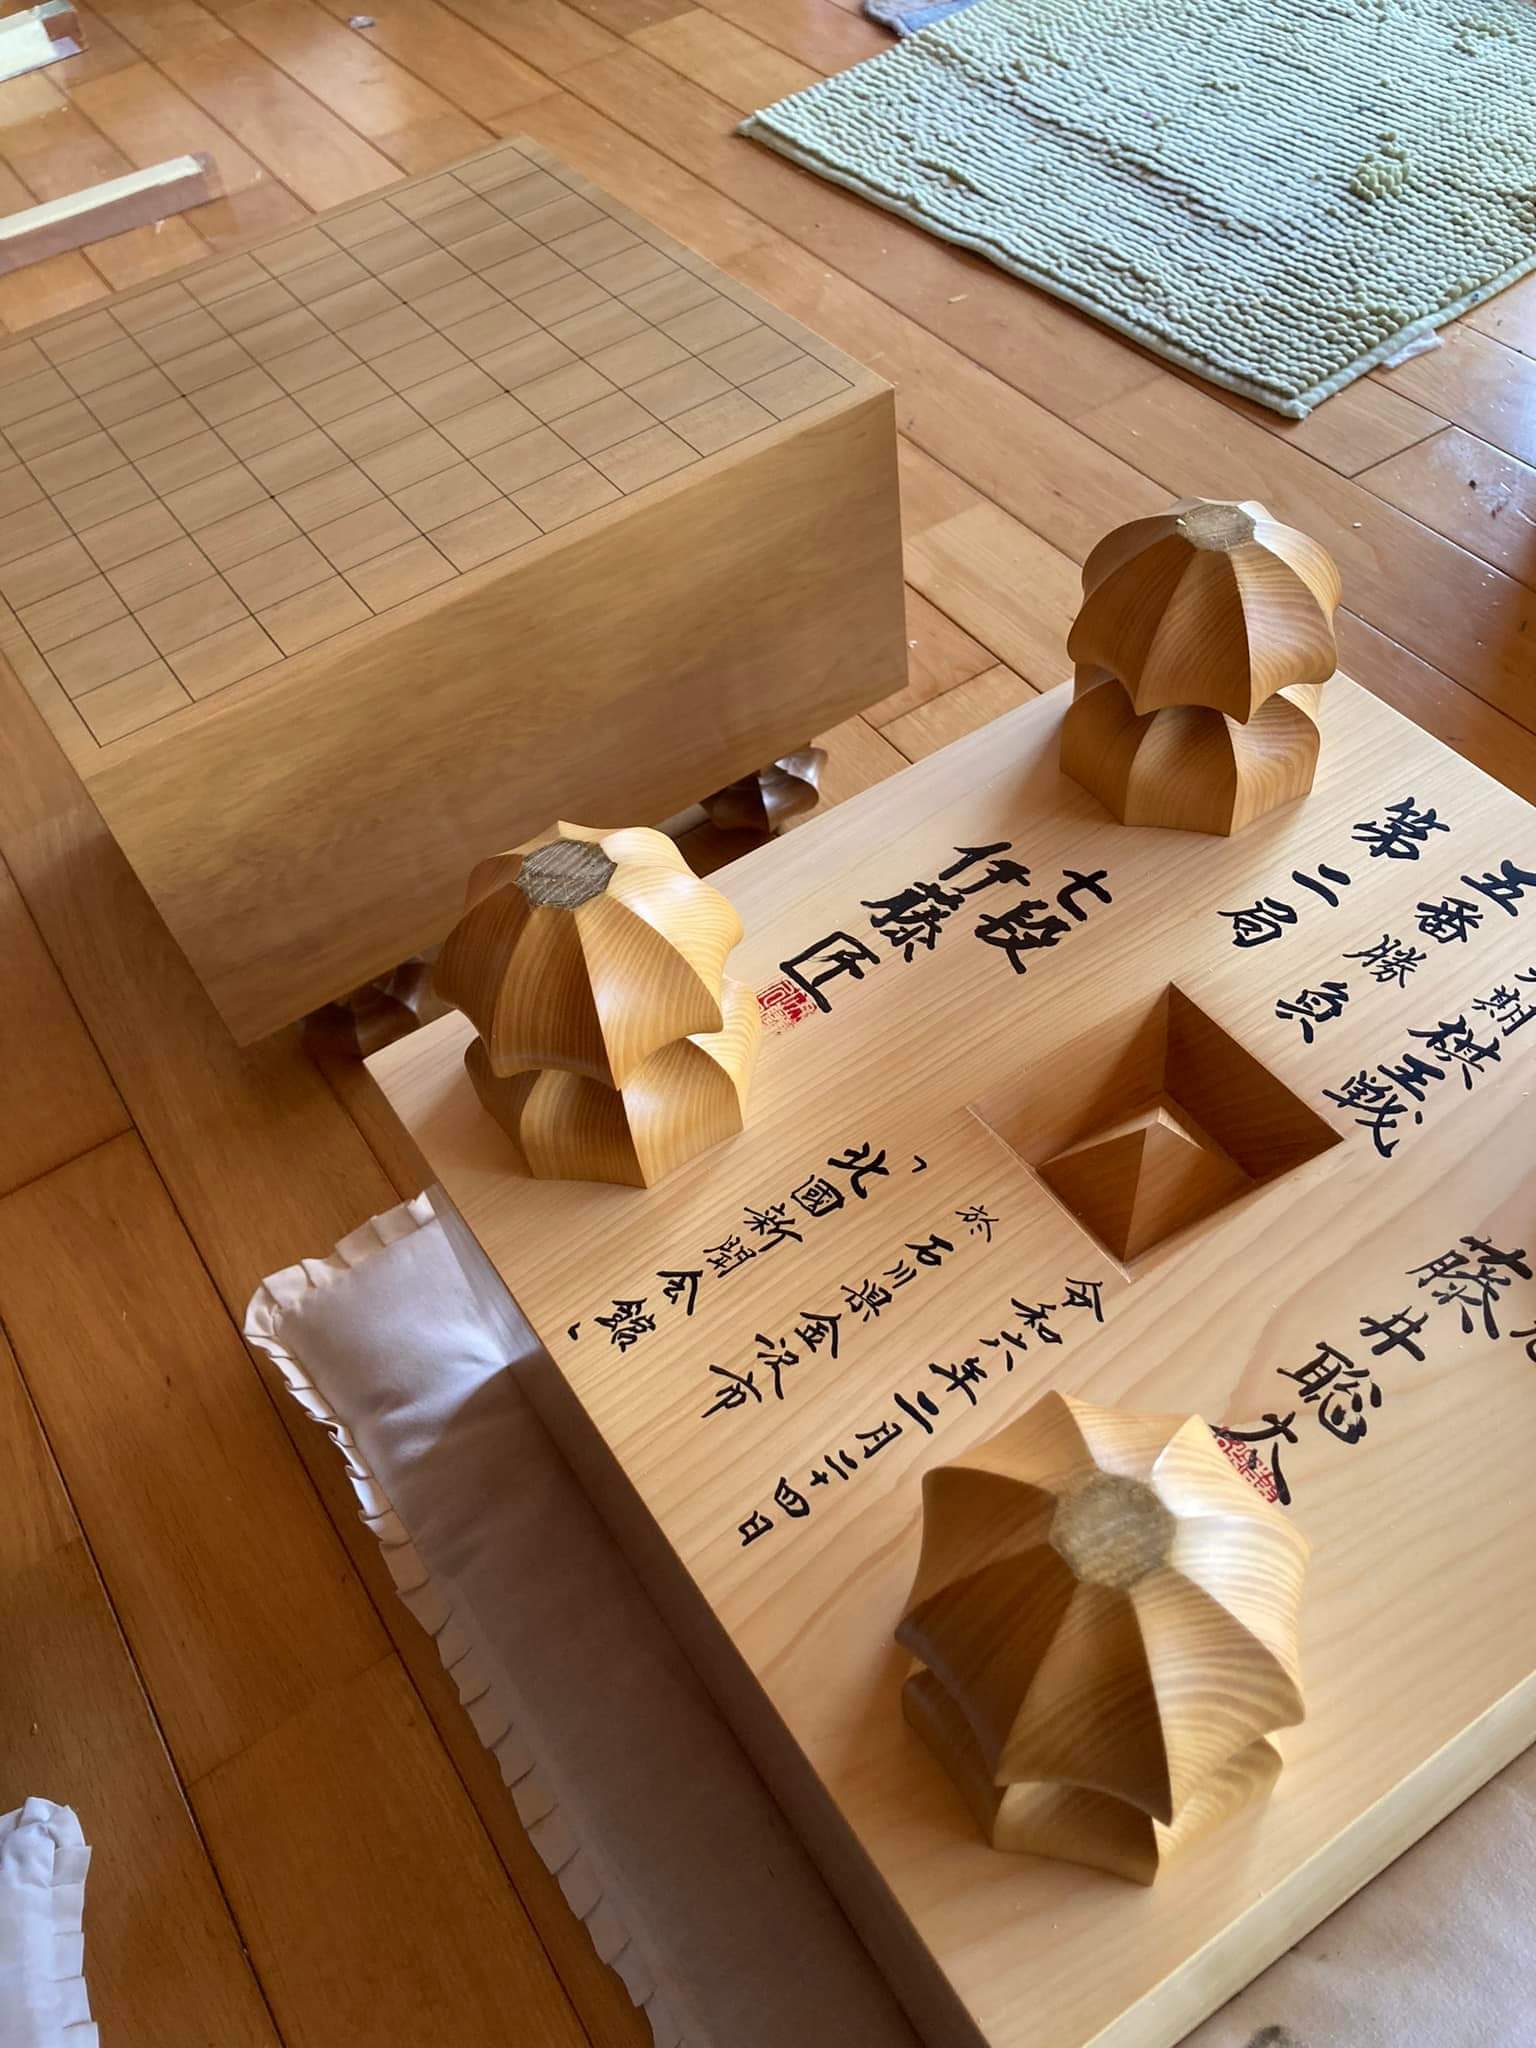 期棋王戦
五番勝負
第二局
藤井聡太
七段
伊藤匠
令和六年二月二十四日
於 石川県金沢市
「北國新聞会館」